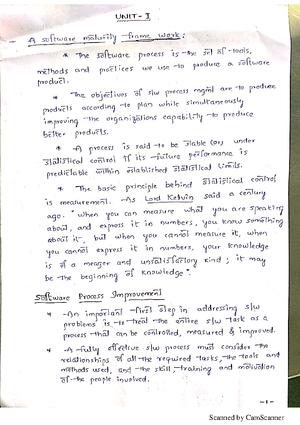 UNIT - I
A software maturity frame work :
* The software process is the set of tools,
methods and practices we use to produce a software
product.
* The objectives of s/w process mgmt are to produce
products according to plan while simultaneously
improving the organizations capability to produce
better products.
* A process is said to be stable (or) under
statistical control if its future performance is
predictable within established statistical limits.
* The basic principle behind statistical control
is measurement. As Lord Kelvin said a century
ago. "when you can measure what you are speaking
about, and express it in numbers, you know something
about it, but when you cannot measure it, when
you cannot express it in numbers, your knowledge
is of a meager and unsatisfactory kind ; it may
be the beginning of knowledge".
Software Process Improvement
* An important first step in addressing s/w
problems is to treat the entire s/w task as a
process that can be controlled, measured & improved.
* A fully effective s/w process must consider the
relationships of all the required tasks, the tools and
methods used, and the skill, training and motivation
of the people involved.
-1-
Scanned by CamScanner